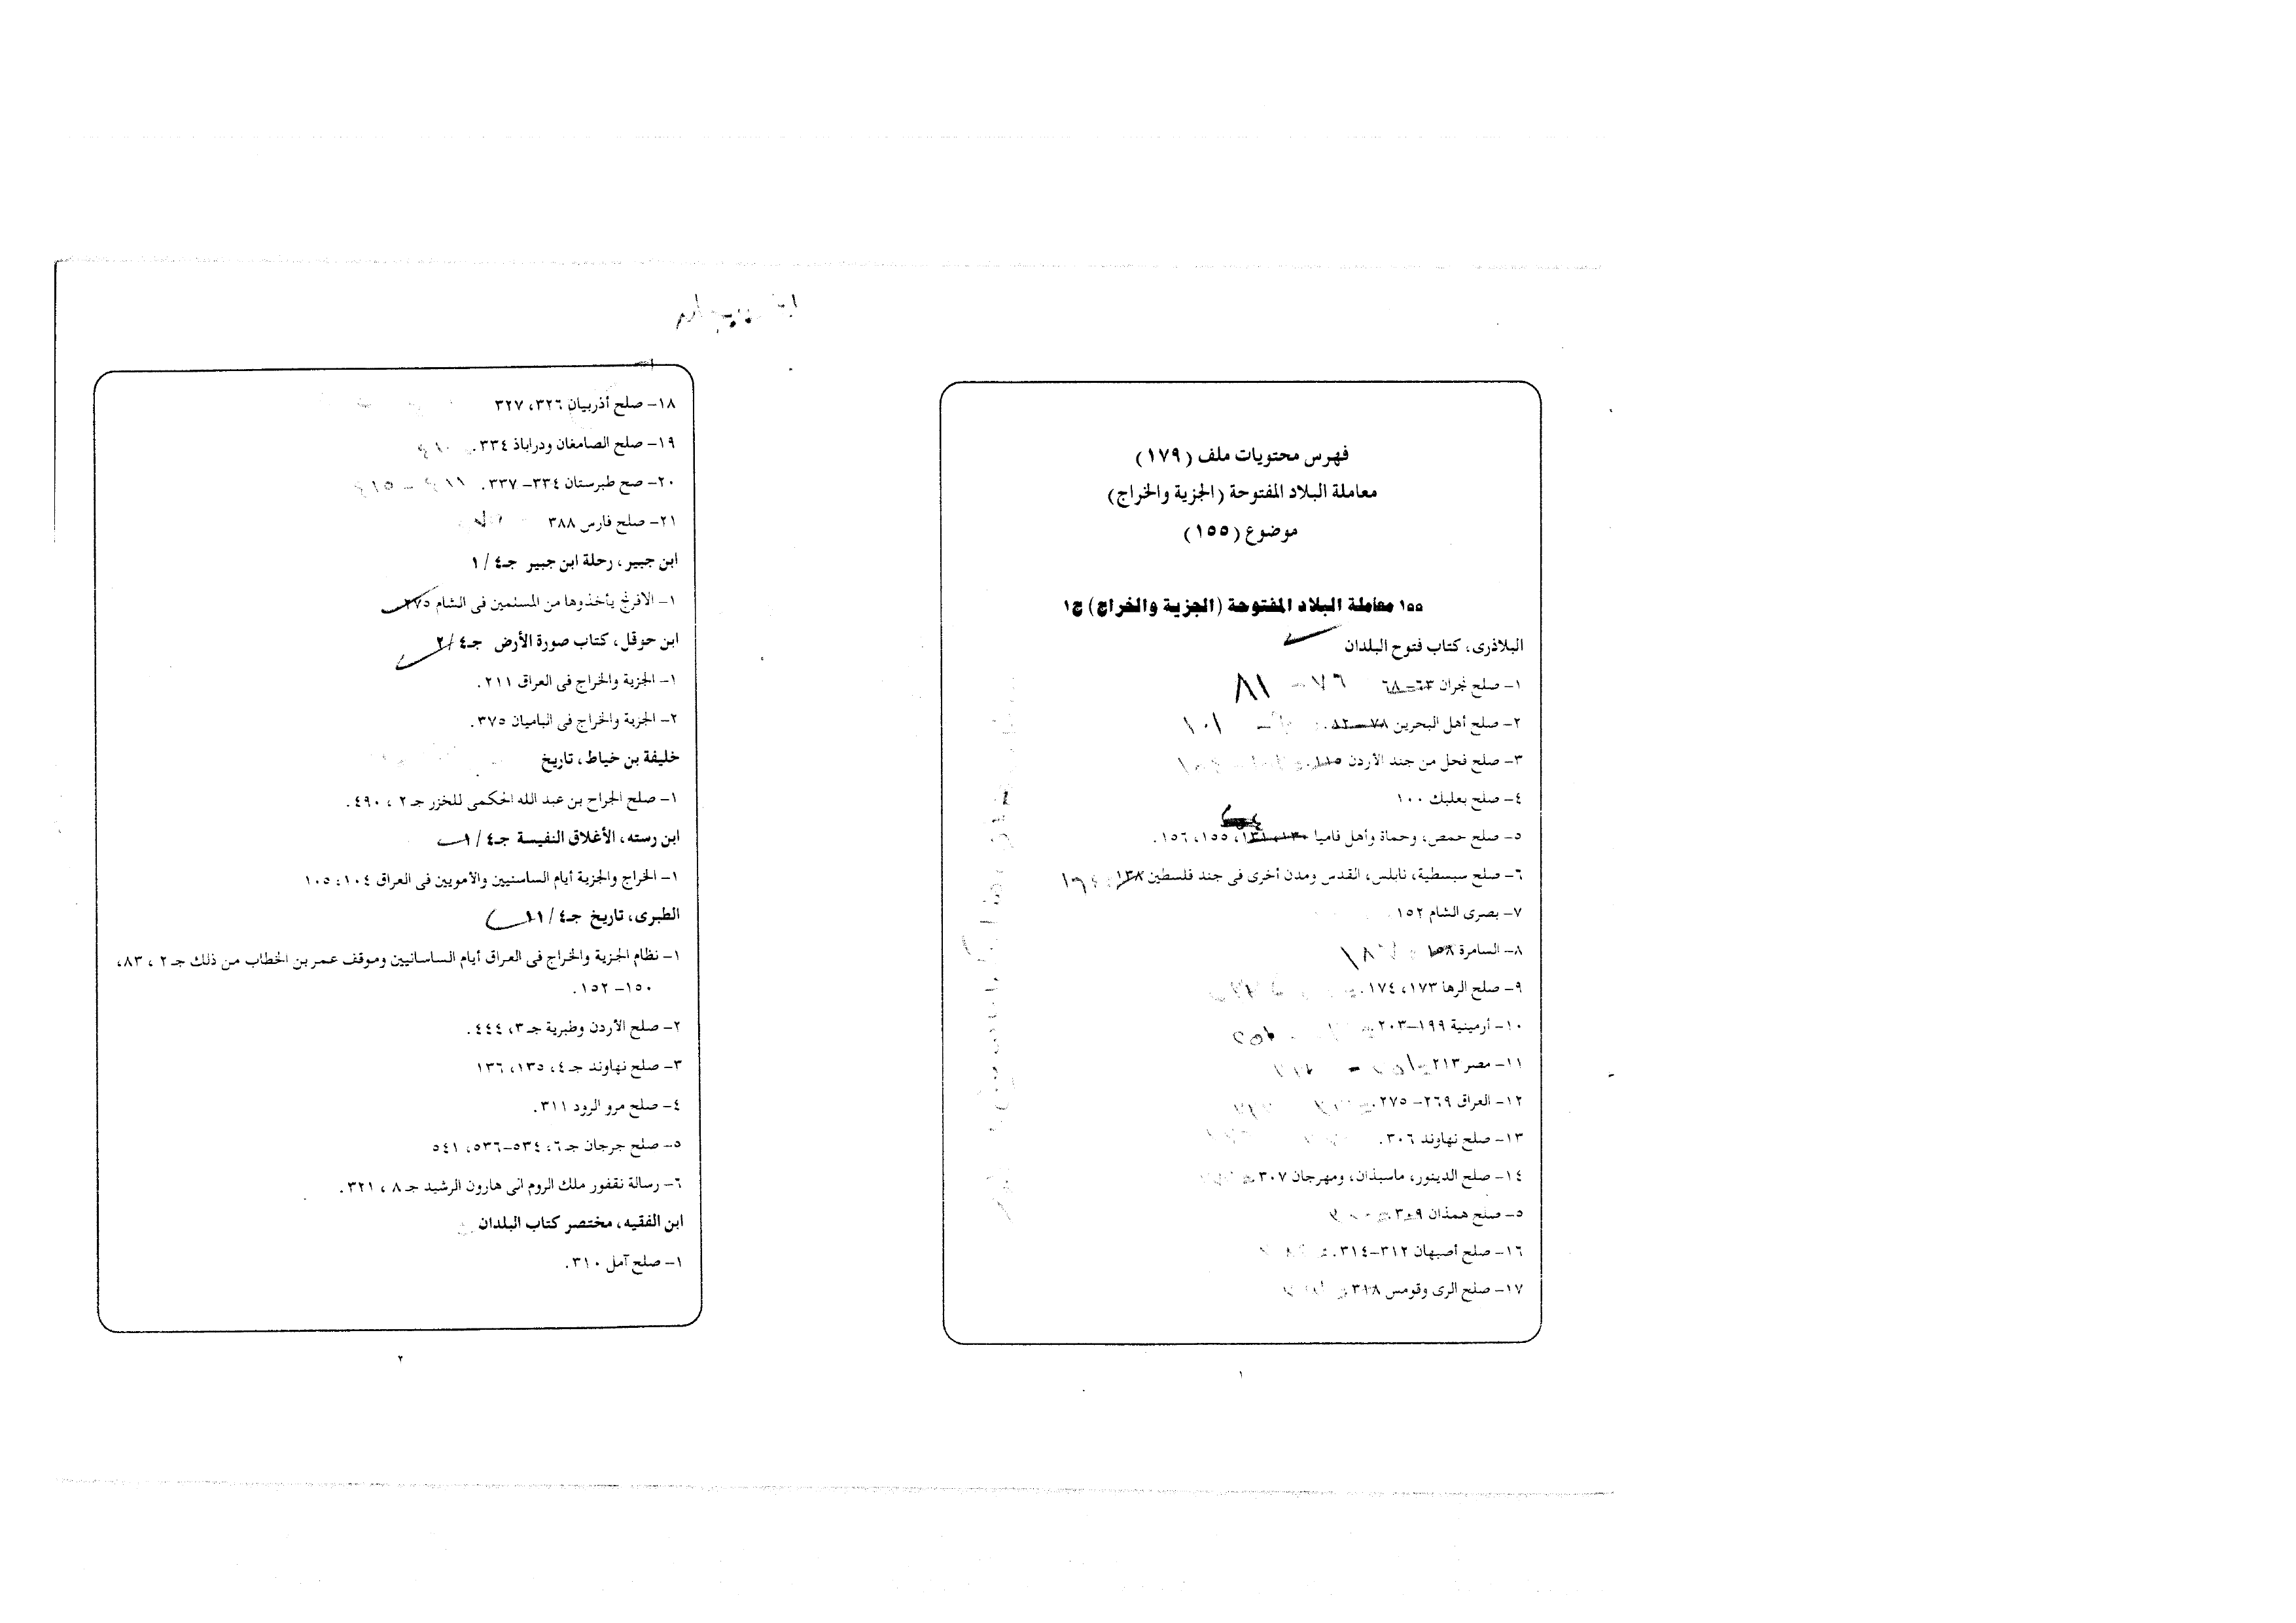 فهرس محتويات ملف (١٧٩)
معاملة البلاد المفتوحة (الجزية والخراج)
موضوع (١٥٥)
١٥٥ معاملة البلاد المفتوحة (الجزية والخراج) ج١
البلاذرى، كتاب فتوح البلدان
١- صلح نجران ٦٣-٦٨ ٧٦ - ٨١
٢- صلح أهل البحرين ٧٨-٨٢. - ١٠١
٣- صلح فحل من جند الأردن ١١٥.
٤- صلح بعلبك ١٠٠
٥- صلح حمص، وحماة وأهل فاميا ١٣٠، ١٣١، ١٥٥، ١٥٦.
٦- صلح سبسطية، نابلس، القدس ومدن أخرى فى جند فلسطين ١٣٨
٧- بصرى الشام ١٥٢.
٨- السامرة ١٥٨
٩- صلح الرها ١٧٣، ١٧٤.
١٠- أرمينية ١٩٩-٢٠٣
١١- مصر ٢١٣
١٢- العراق ٢٦٩- ٢٧٥.
١٣- صلح نهاوند ٣٠٦.
١٤- صلح الدينور، ماسبذان، ومهرجان ٣٠٧
٥- صلح همذان ٣٠٩
١٦- صلح أصبهان ٣١٢-٣١٤.
١٧- صلح الرى وقومس ٣١٨
١
١٨- صلح أذربيان ٣٢٦، ٣٢٧
١٩- صلح الصامغان ودراباذ ٣٣٤.
٢٠- صح طبرستان ٣٣٤- ٣٣٧.
٢١- صلح فارس ٣٨٨
ابن جبير، رحلة ابن جبير جـ٤ /١
١- الافرنج يأخذوها من المسلمين فى الشام ٢٧٥.
ابن حوقل، كتاب صورة الأرض جـ٤ /٢
١- الجزية والخراج فى العراق ٢١١.
٢- الجزية والخراج فى الباميان ٣٧٥.
خليفة بن خياط، تاريخ
١- صلح الجراح بن عبد الله الحكمى للخزر جـ٢ ، ٤٩٠.
ابن رسته، الأغلاق النفيسة جـ٤ /١
١- الخراج والجزية أيام الساسنيين والأمويين فى العراق ١٠٤، ١٠٥
الطبرى، تاريخ جـ٤ /١١
١- نظام الجزية والخراج فى العراق أيام الساسانيين وموقف عمر بن الخطاب من ذلك جـ٢ ، ٨٣،
١٥٠- ١٥٢.
٢- صلح الأردن وطبرية جـ٣، ٤٤٤.
٣- صلح نهاوند جـ٤، ١٣٥، ١٣٦
٤- صلح مرو الرود ٣١١.
٥- صلح جرجان جـ٦، ٥٣٤-٥٣٦، ٥٤١
٦- رسالة نقفور ملك الروم الى هارون الرشيد جـ٨ ، ٣٢١.
ابن الفقيه، مختصر كتاب البلدان
١- صلح آمل ٣١٠.
٢